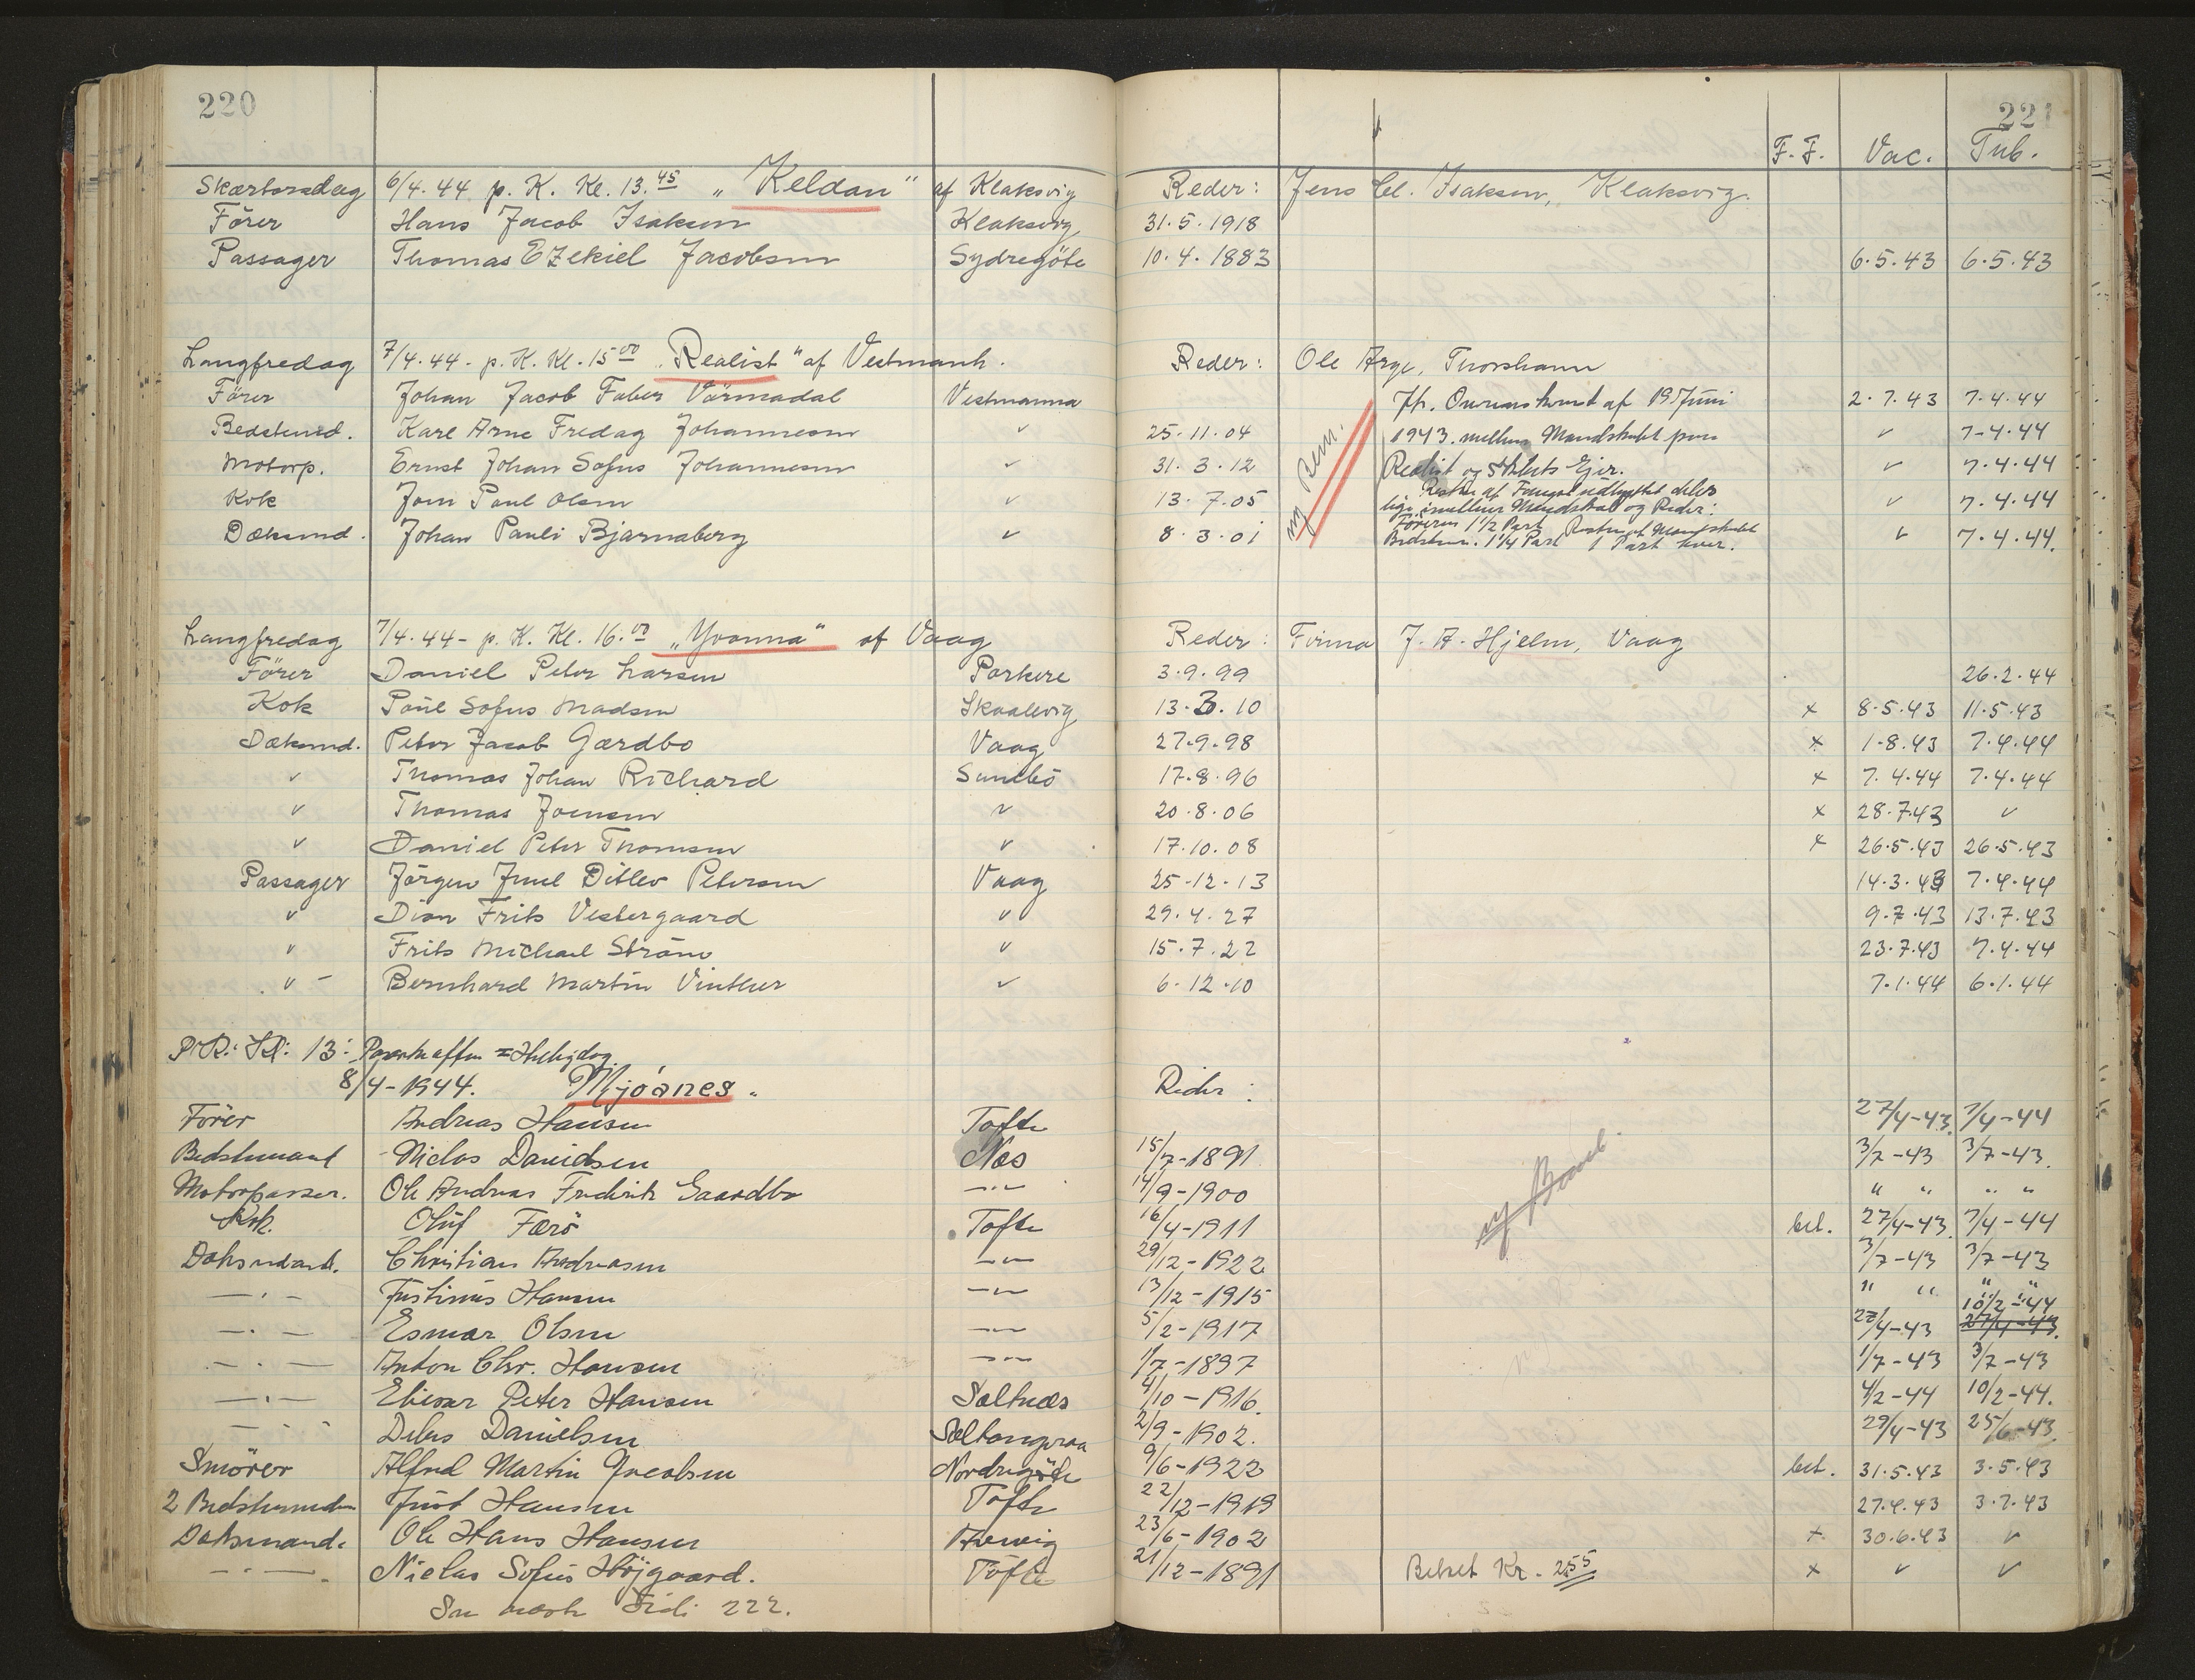 220
221
F.F. Vac. Tub.
Skærtorsdag 6/4.44 p. K. Kl. 13.45 „Keldan" af Klaksvig Reder: Jens Cl. Isaksen, Klaksvig.
Förer Hans Jacob Isaksen Klaksvig 31.5.1918
Passager Thomas Ezekiel Jacobsen Sydregöte 10.4.1883 6.5.43 6.5.43
Langfredag 7/4.44 - p. K. Kl. 15 00 „Realist" af Vestmanh. Reder: Ole Arge, Thorshavn
Förer Johan Jacob Faber Vörmadal Vestmanna Jfr. Overenskomst af 19 Juni 2.7.43 7.4.44
Bedstemd. Karl Arne Fredag Johannesen v 25.11.04 1943. mellem Mandskabet paa v 7-4.44
Motorp. Ernst Johan Sofus Johannesen v 31.3.12 Realist og Skibets Ejer. v 7.4.44
Kok Jon Paul Olsen v 13.7.05 Resten af Fangstudbyttet deles v 7.4.44
lige imellem Mandskab og Reder:
Dæksmd. Johan Pauli Bjarnaberg v 8.3.01 Föreren 1 1/2 Part Resten af Mandskabet v 7.4.44.
Bedstem. 1 1/4 Part 1 Part hver.
Langfredag 7/4.44 - p. K. Kl. 16.00 „Yvonna" af Vaag Reder: Firma J. A. Hjelm, Vaag
Förer Daniel Peter Larsen Porkere 3.9.99 26.2.44
Kok Paul Sofus Madsen Skaalevig 13.3.10 x 8.5.43 11.5.43
Dæksmd. Peter Jacob Gærdbo Vaag 27.9.98 x 1-8.43 7.4.44
v Thomas Johan Richard Sumbö 17.8.96 x 7.4.44 7.4.44
v Thomas Joensen v 20.8.06 x 28.7.43 v
v Daniel Peter Thomsen v 17.10.08 x 26.5.43 26.5.43
Passager Jörgen Juul Ditlev Petersen Vaag 25-12-13 14.3.43 7.4.44
v Dion Frits Vestergaard v 29.4.27 9.7.43 13.7.43
v Frits Michael Ström v 15.7.22 23.7.43 7.4.44
v - Bernhard Martin Vinther v 6.12.10 7.1.44 6.1.44
P.K. Kl: 13: Paaskeaften = Helligdag
8/4-1944. Mjóanes. Reder:
Förer Andreas Hansen Tofte 27/4-43. 7/4-44
Bedstemand Niclas Davidsen Næs 15/7-1891 3/7-43 3/7-43.
Motorpasser. Ole Andreas Frederik Gaardbo -"- 14/9-1900 " " " "
Kok. Oluf Færö Tofte 16/4-1911 bet. 27/4-43. 7/4-44
Daksmand. Christian Andreasen -"- 29/12-1922 3/7-43 3/7-43
-"- Justinus Hansen -"- 13/12-1915 " " " "
10/2-44
-"- Esmar Olsen -"- 5/2-1917 27/4-43 27/4-43.
-"- Anton Chr. Hansen -"- 1/7-1897 1/7-43 3/7-43
-"- Eliesar Peter Hansen Saltnæs 4/10-1916. 4/2-44 10/2-44.
-"- Debes Danielsen 2/9-1902. 29/4-43 25/6-43.
Smörer Alfred Martin Jacobsen Nordregöte 9/6-1922 bet. 31.5.43 3.5.43
2 Bedstemand Just Hansen Tofte 22/12-1919 27.4.43 3.7.43
Daksmand. Ole Hans Hansen 23/6-1902 + 30.6.43 v
-"- Nielas Sofus Höjgaard. Tofte 21/12-1891 Betalt Kr. 255 x v v
Se næste Side 222.